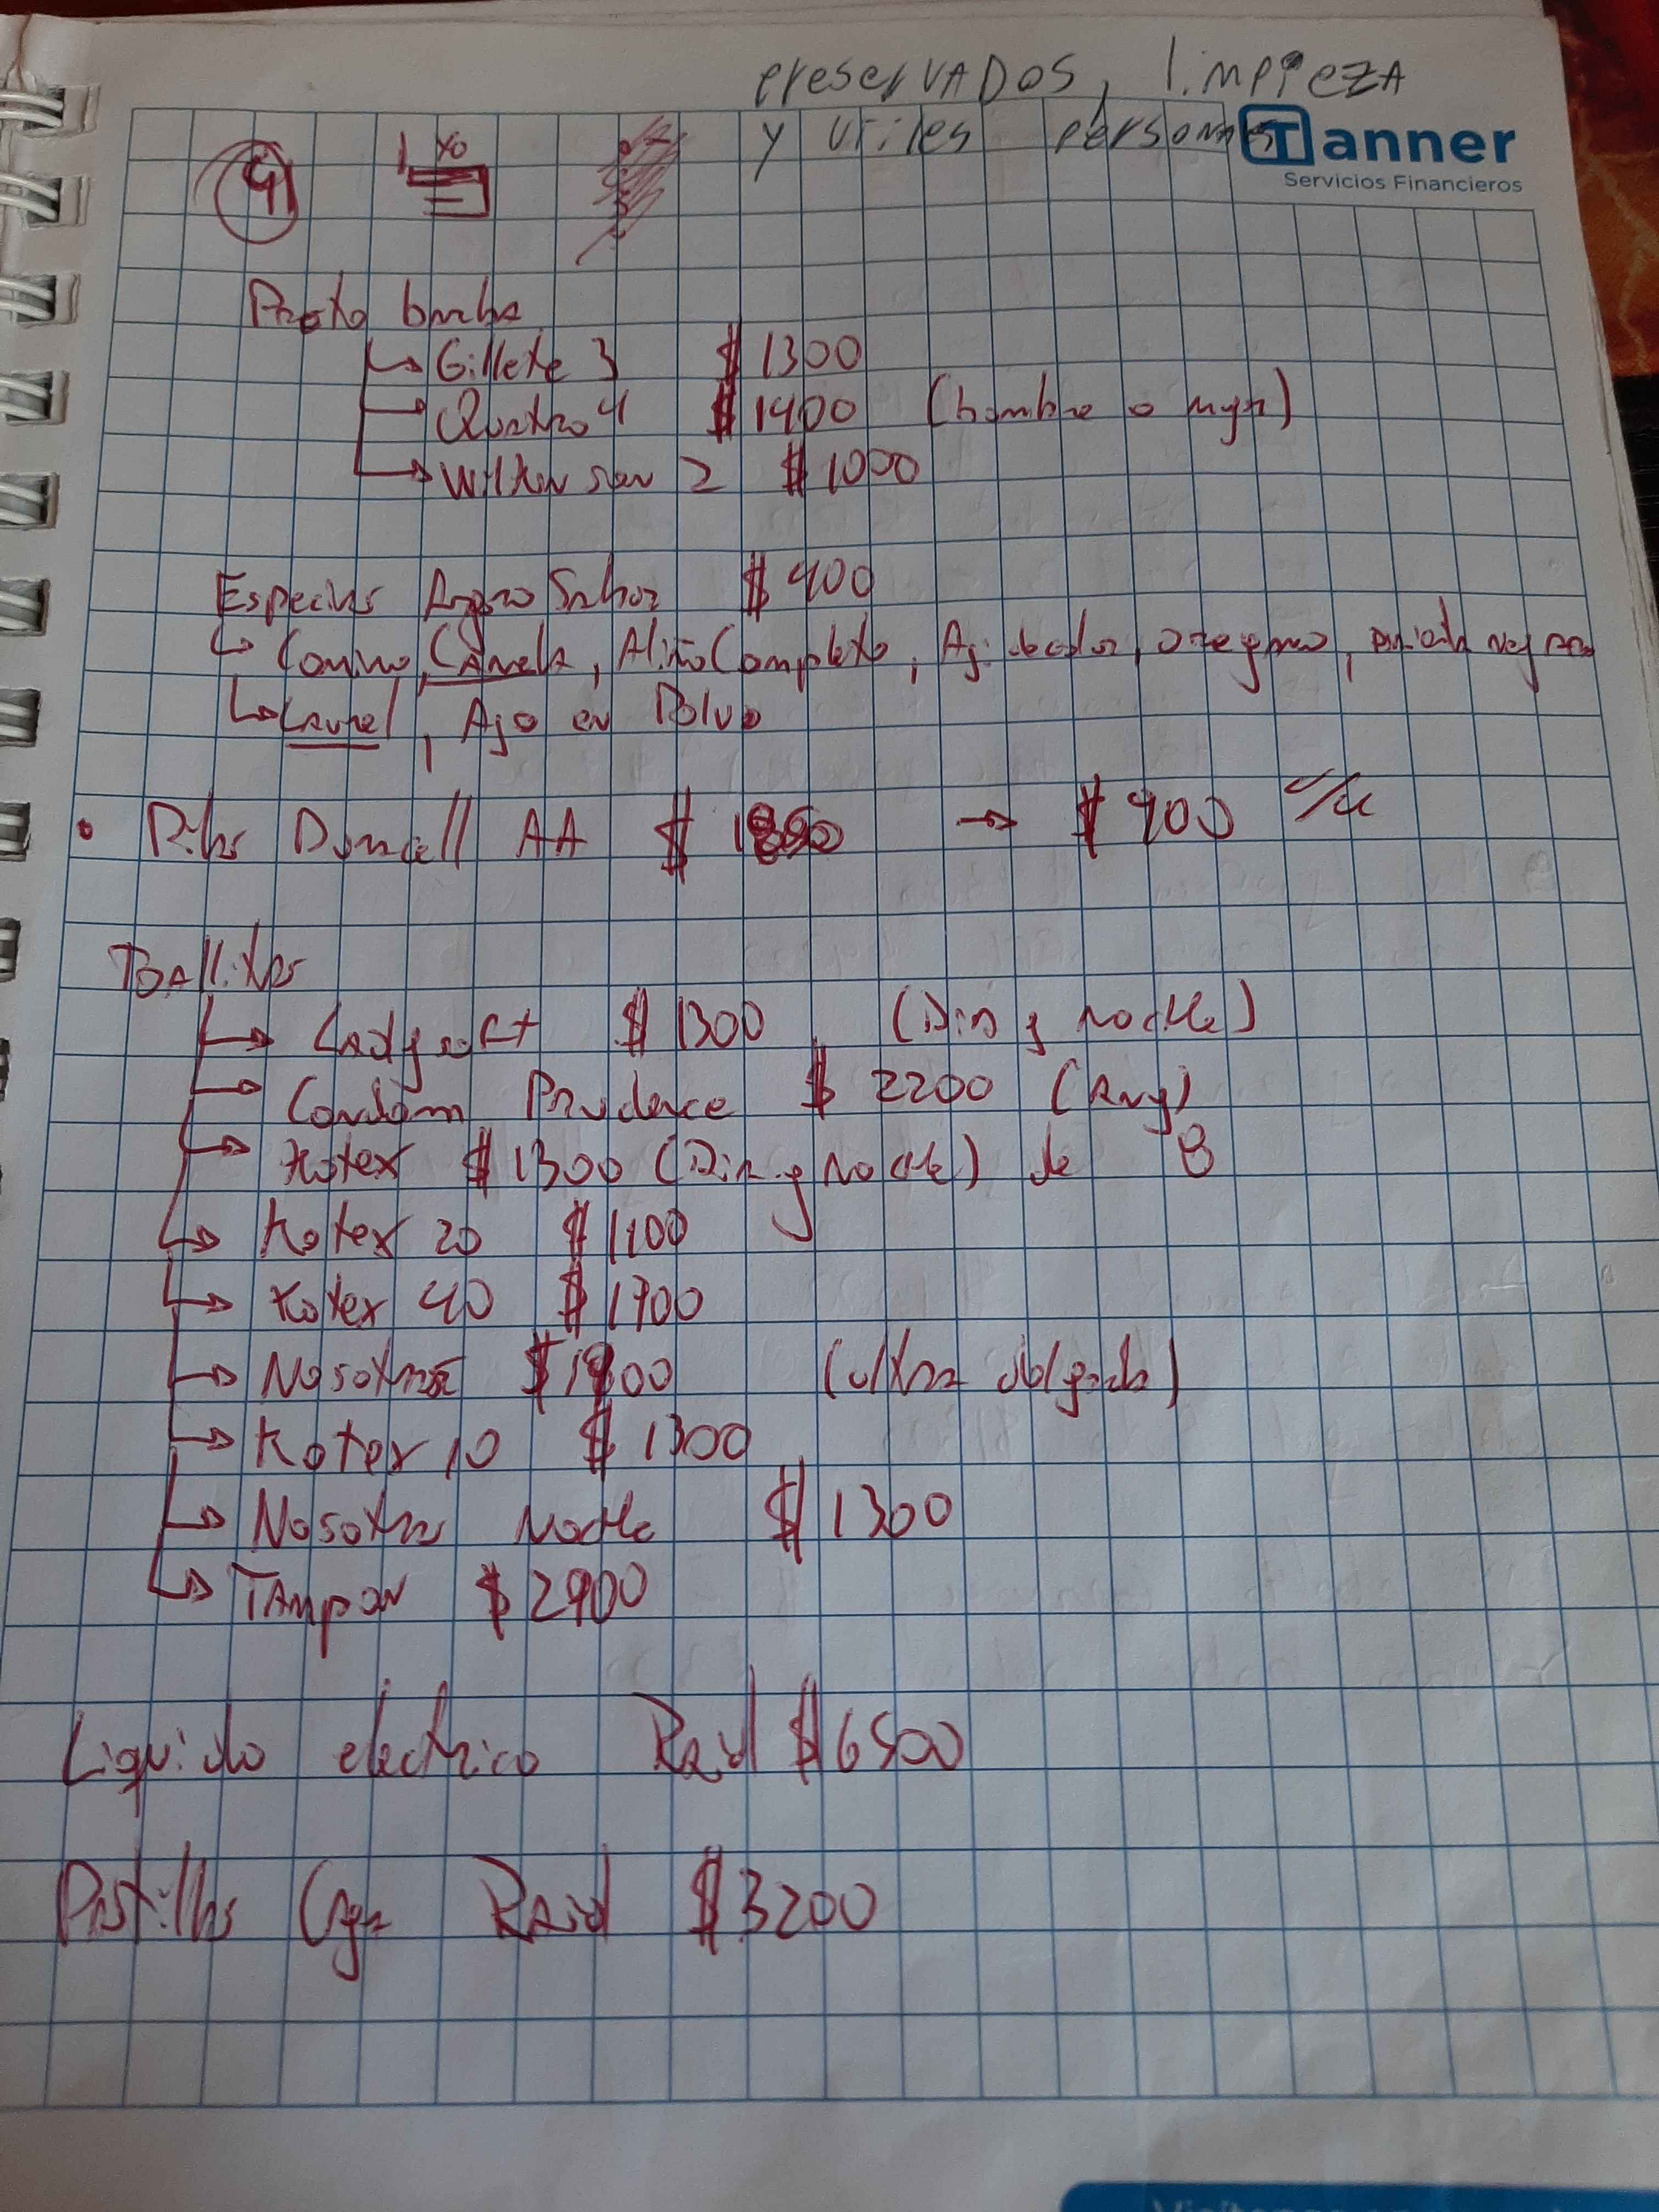 preservados, limpieza
y utiles personales
Tanner
Servicios Financieros
Presto barba
Gillete 3 $1300
Quatro 4 $1400 (hombre o mujer)
Wilkinson 2 $1000
Especias Agro Sabor $400
Comino, Canela, Aliño Completo, Aji de color, oregano, pimienta negra
Laurel, Ajo en Polvo
Pilas Duracell AA $ → $900 c/u
Toallitas
Ladysoft $1300 (Dia y noche)
Condom Prudence $2200
Kotex $1300 (Dia y Noche) de 8
Kotex 20 $1100
Kotex 40 $1900
Nosotras (ultra delgada)
Kotex 10 $1300
Nosotras Noche $1300
Tampon $2900
Liquido electrico Raid $6500
Pastillas Caja Raid $3200